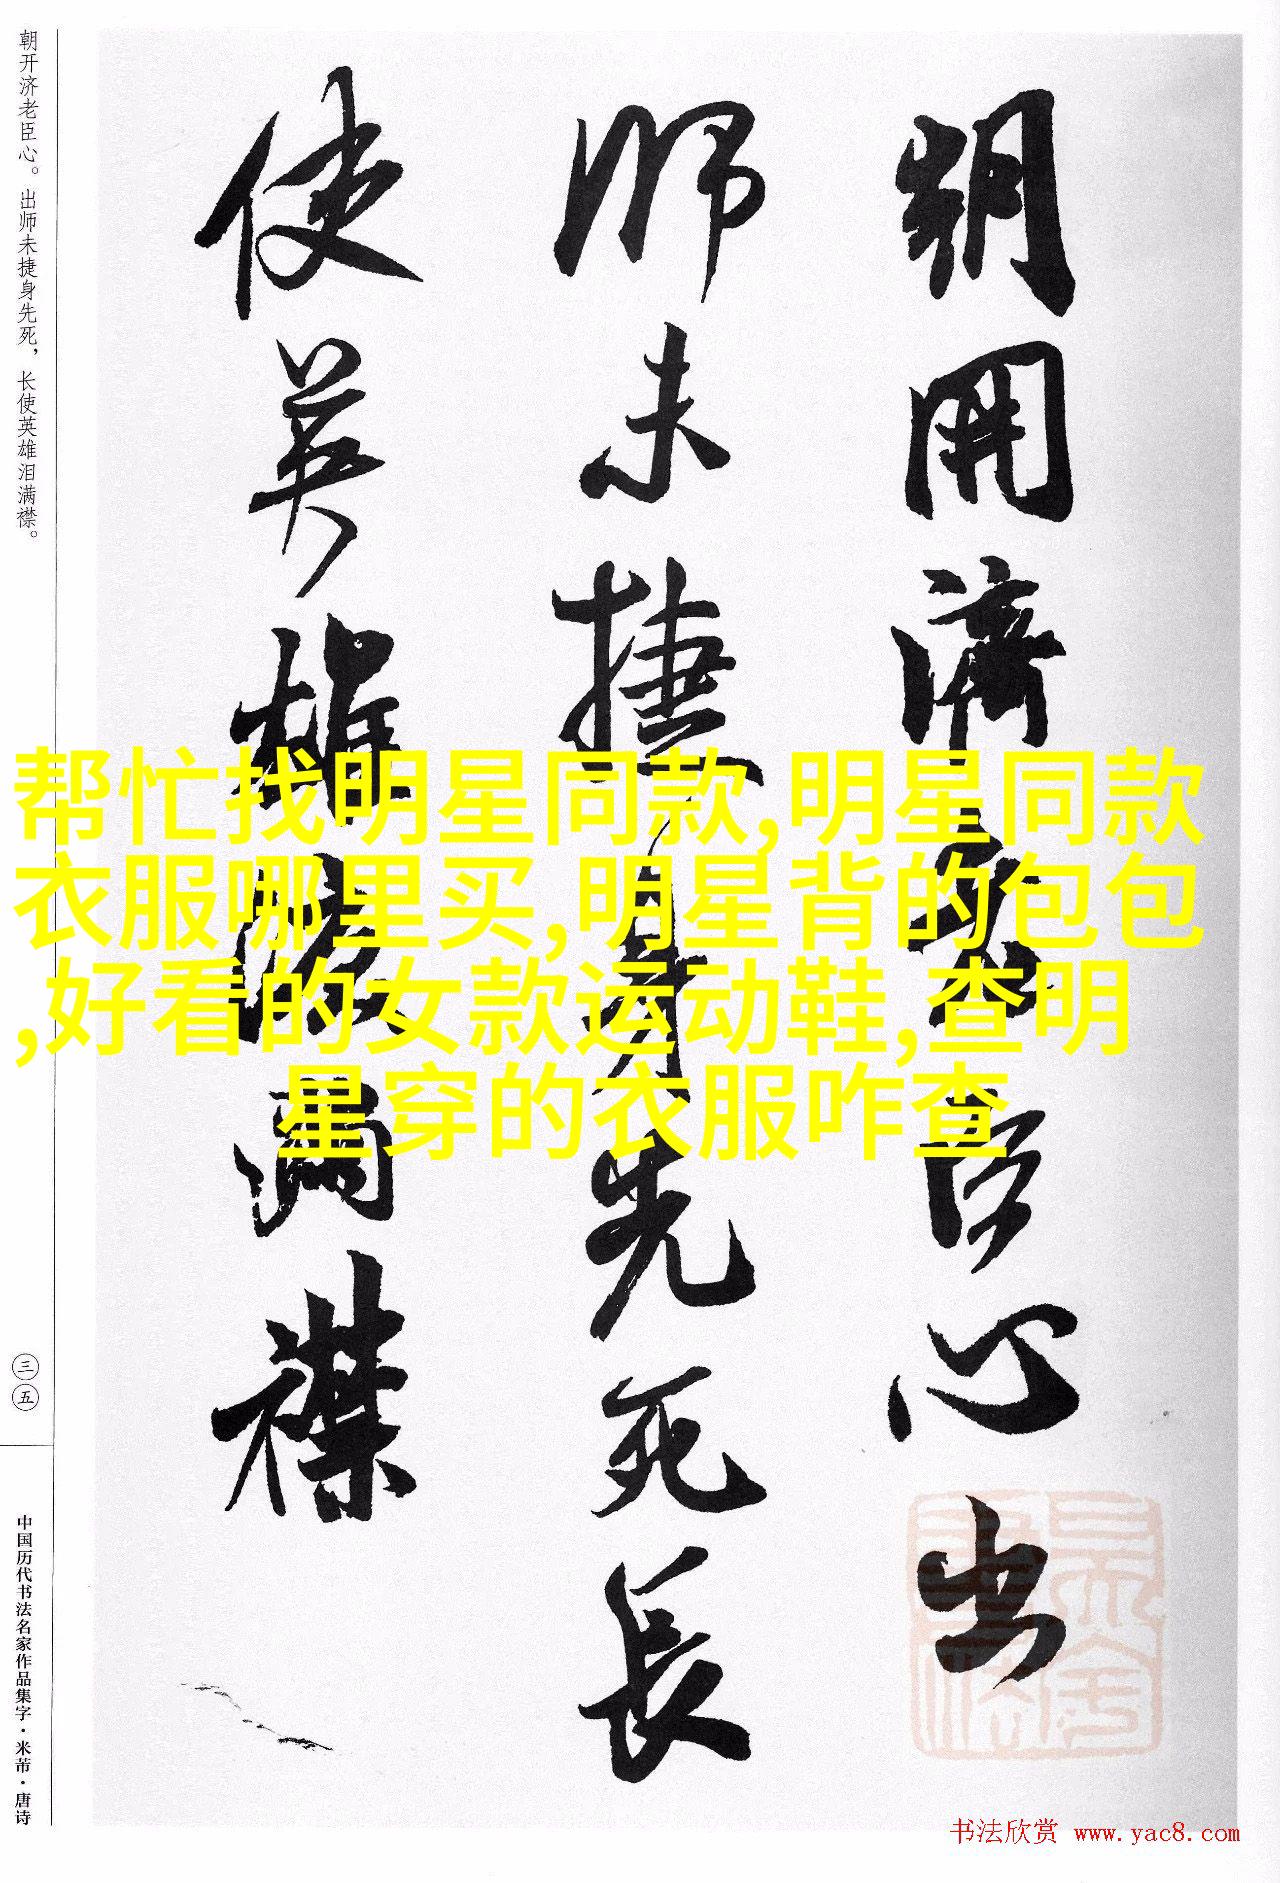 朝開濟老臣心出
師未捷身先死長
使英雄淚滿襟
朝开济老臣心。出师未捷身先死，长使英雄泪满襟。
三五
中国历代书法名家作品集字·米芾·唐诗
帮忙找明星同款,明星同款
衣服哪里买,明星背的包包
,好看的女款运动鞋,查明
星穿的衣服咋查
书法欣赏 www.yac8.com